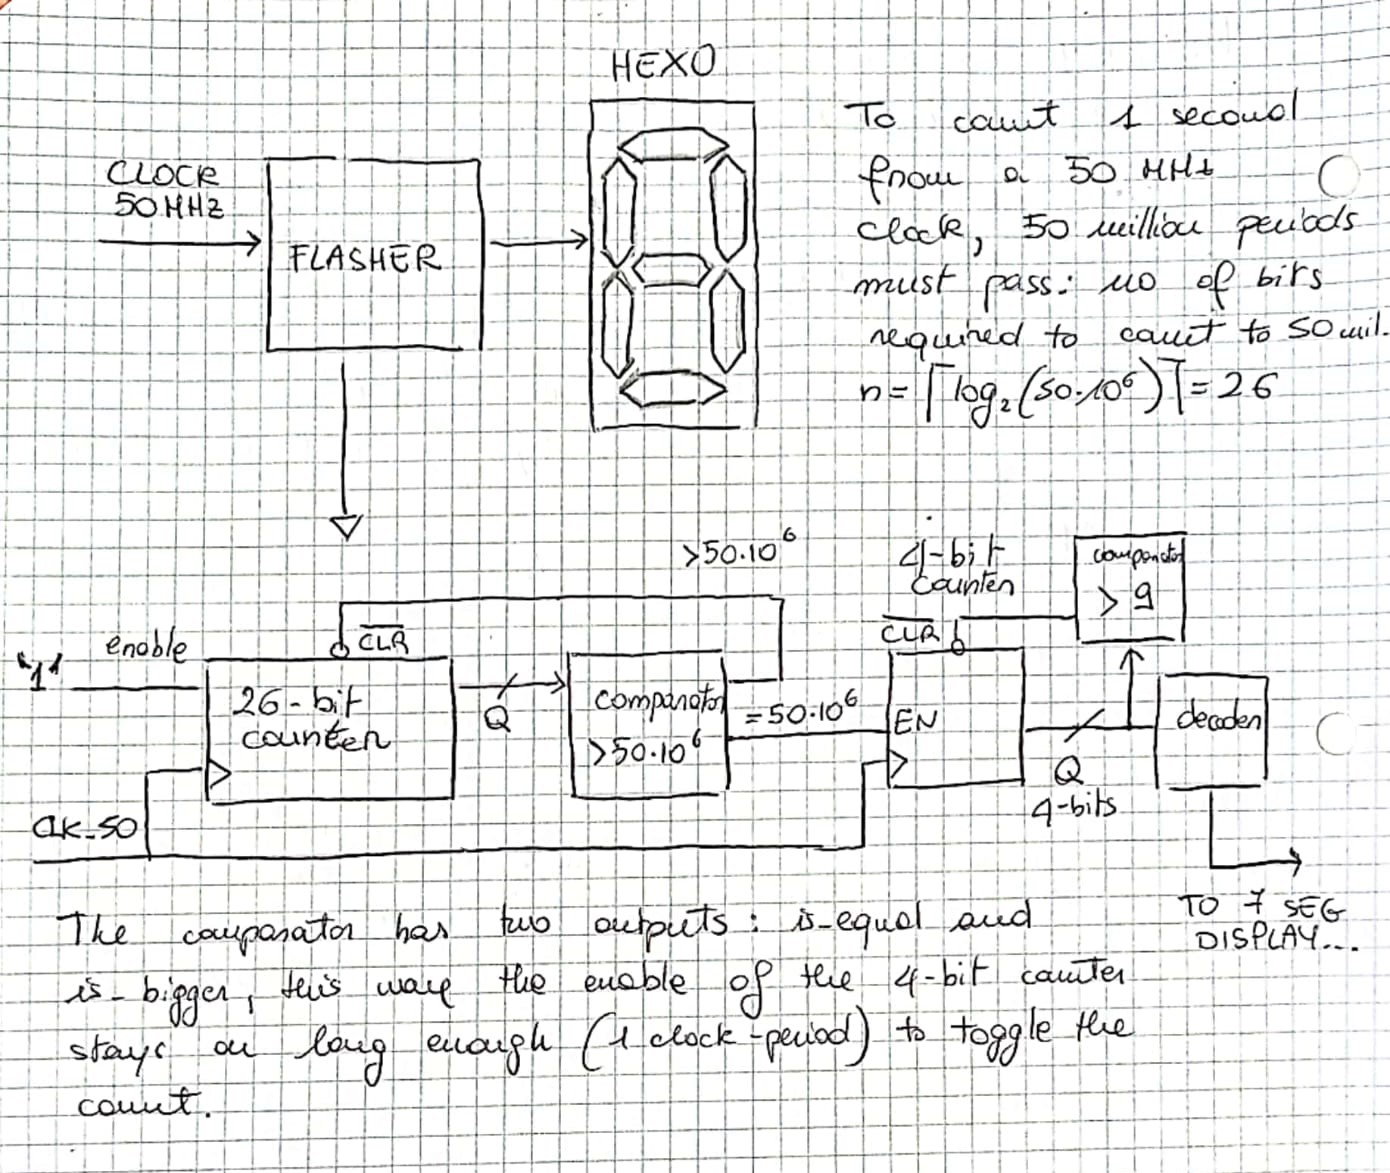 HEX0
CLOCK
50MHZ
FLASHER
To count 1 second
from a 50 MHz
clock, 50 million periods
must pass: no of bits
required to count to 50 mil.
n = ⌈log₂(50·10⁶)⌉ = 26
>50·10⁶
4-bit
counter
comparator
> 9
"1"
enable
CLR
26-bit
counter
Q
comparator
>50·10⁶
=50·10⁶
CLR
EN
Q
4-bits
decoder
CLK_50
TO 7 SEG
DISPLAY...
The comparator has two outputs: is-equal and
is-bigger, this way the enable of the 4-bit counter
stays on long enough (1 clock-period) to toggle the
count.